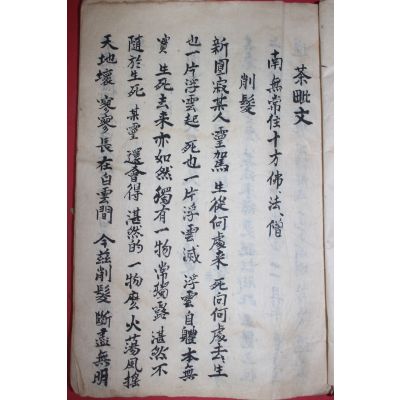 茶毗文
南無常住十方佛、法、僧
削髮
新圓寂某人靈駕 生從何處來 死向何處去 生
也一片浮雲起 死也一片浮雲滅 浮雲自體本無
實 生死去來亦如然 獨有一物常獨露 湛然不
隨於生死 某靈 還會得 湛然的一物麼 火蕩風搖
天地壞 寥寥長在白雲間 今玆削髮 斷盡無明